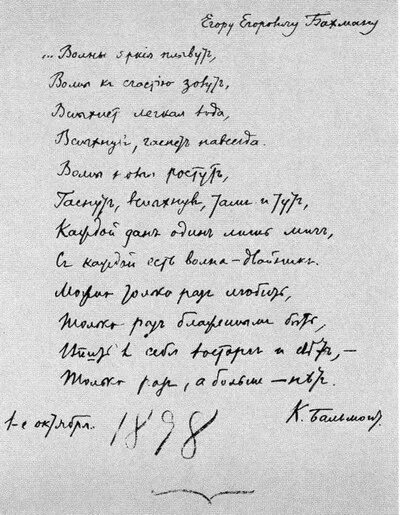 Егору Егоровичу Бахману
...Волны яркія плывутъ,
Волны къ счастію зовутъ,
Вспыхнетъ легкая вода,
Вспыхнувъ, гаснетъ навсегда.
Волны новыя ростутъ,
Гаснутъ, вспыхнувъ, тамъ и тутъ,
Каждой данъ одинъ лишь мигъ,
Съ каждой есть волна-двойникъ.
Можно только разъ любить,
Только разъ блаженнымъ быть,
Впить въ себя восторгъ и свѣтъ, —
Только разъ, а больше — нѣтъ.
К. Бальмонтъ.
1-е октября. 1898